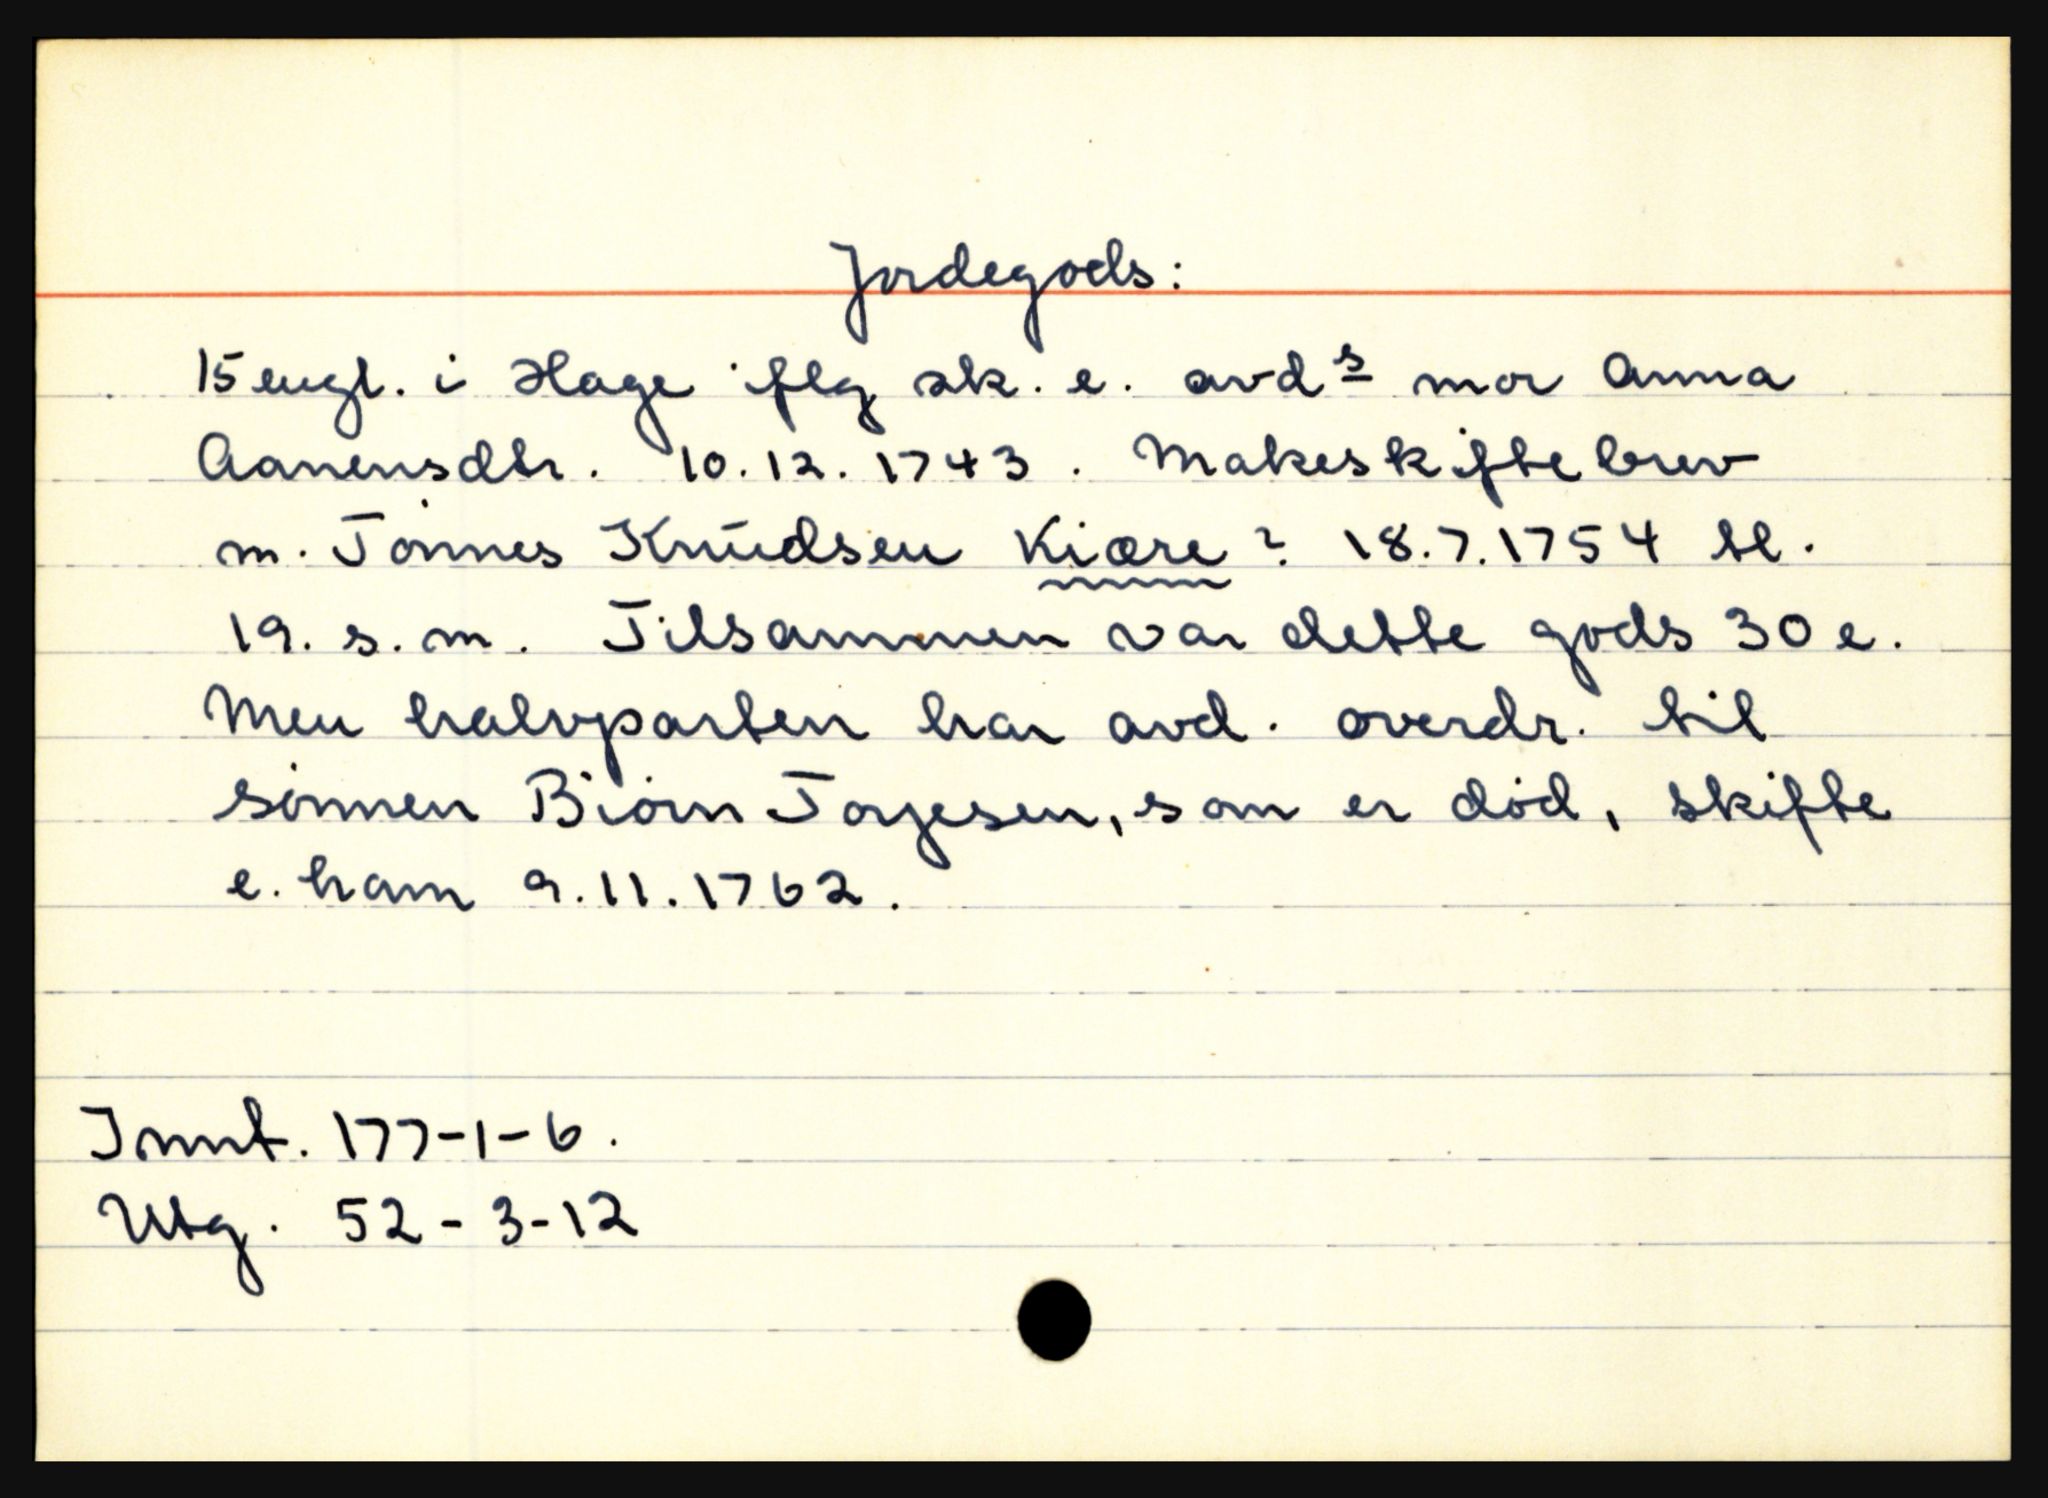 Jordegods:
15 eugl. i Hage iflg sk. e. avds mor Anna
Aanensdtr. 10.12.1743. Makeskiftebrev
m. Tønnes Knudsen Kiære? 18.7.1754 tl.
19. s. m. Tilsammen var dette gods 30 e.
Men halvparten har avd. overdr. til
sønnen Biørn Torjesen, som er død, skifte
e. ham 9.11.1762.
Innt. 177-1-6.
Utg. 52-3-12